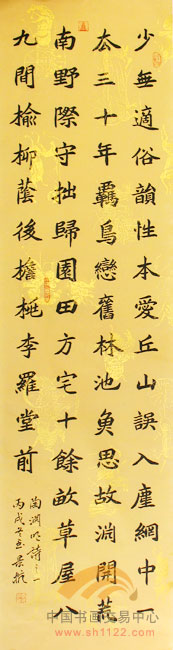 少無適俗韻性本愛丘山誤入塵網中一
去三十年羈鳥戀舊林池魚思故渊開荒
南野際守拙歸園田方宅十餘畝草屋八
九間榆柳蔭後檐桃李羅堂前
陶渊明詩之一
丙戌
中国书画交易中心
www.sh1122.com